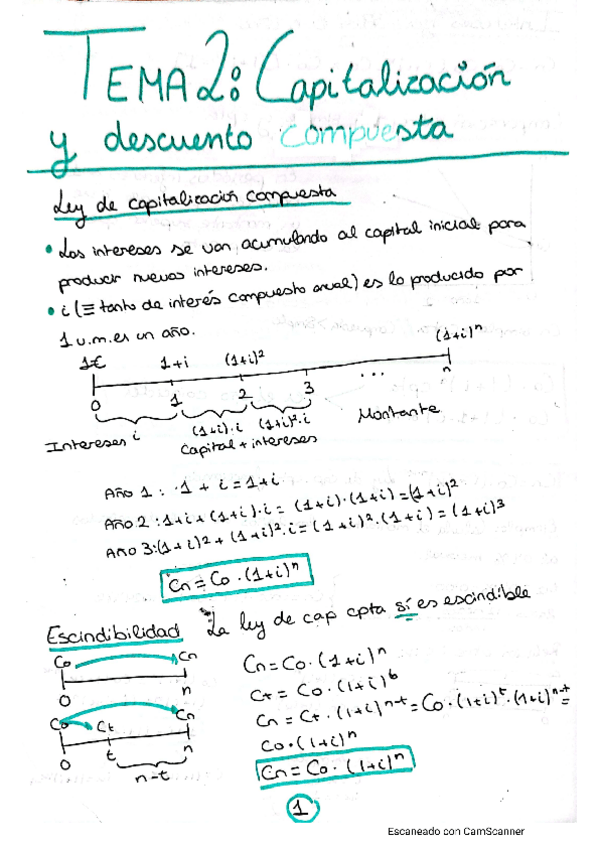 TEMA 2: Capitalización
y descuento compuesta
Ley de capitalización compuesta
• Los intereses se van acumulando al capital inicial para
producir nuevos intereses.
• i (≡ tanto de interés compuesto anual) es lo producido por
1 u.m. es un año.
1€ 1+i (1+i)² (1+i)ⁿ
0 1 2 3 ... n
Intereses i (1+i)·i (1+i)²·i Montante
Capital + intereses
Año 1: ·1 + i = 1+i
Año 2: 1+i + (1+i)·i = (1+i)·(1+i) = (1+i)²
Año 3: (1+i)2 + (1+i)²·i = (1+i)²·(1+i) = (1+i)³
Cn = Co·(1+i)ⁿ
Escindibilidad La ley de cap cpta sí es escindible
Co Cn
0 n
Cn = Co·(1+i)ⁿ
Ct = Co·(1+i)ᵗ
Co Ct Cn
0 t n
n-t
Cn = Ct·(1+i)ⁿ⁻ᵗ = Co·(1+i)ᵗ·(1+i)ⁿ⁻ᵗ =
Co·(1+i)ⁿ
Cn = Co·(1+i)ⁿ
1
Escaneado con CamScanner